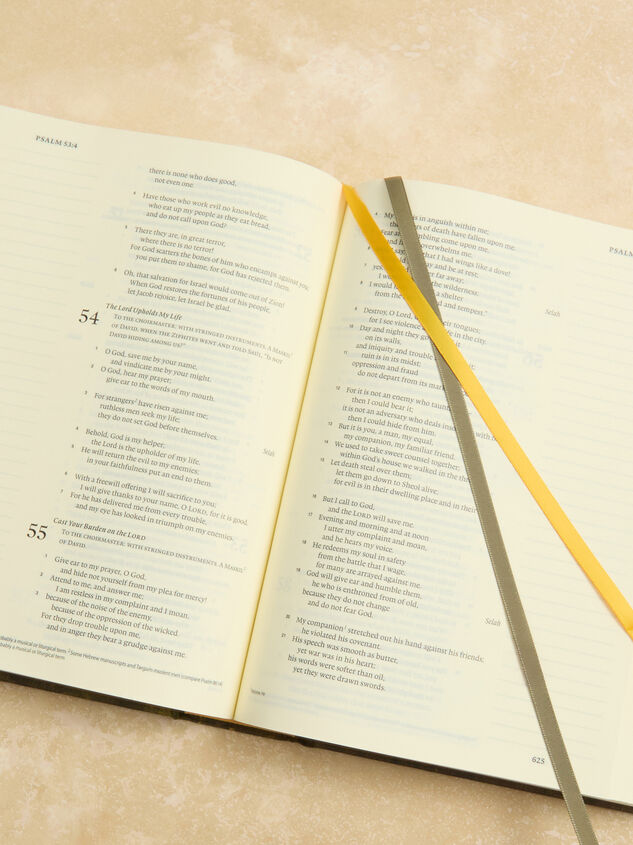 PSALM 53:4
there is none who does good,
not even one.
4 Have those who work evil no knowledge,
who eat up my people as they eat bread,
and do not call upon God?
5 There they are, in great terror,
where there is no terror!
For God scatters the bones of him who encamps against you;
you put them to shame, for God has rejected them.
6 Oh, that salvation for Israel would come out of Zion!
When God restores the fortunes of his people,
let Jacob rejoice, let Israel be glad.
54 The Lord Upholds My Life
TO THE CHOIRMASTER: WITH STRINGED INSTRUMENTS. A MASKIL
OF DAVID, WHEN THE ZIPHITES WENT AND TOLD SAUL, "IS NOT
DAVID HIDING AMONG US?"
1 O God, save me by your name,
and vindicate me by your might.
2 O God, hear my prayer;
give ear to the words of my mouth.
3 For strangers have risen against me;
ruthless men seek my life;
they do not set God before themselves. Selah
4 Behold, God is my helper;
the Lord is the upholder of my life.
5 He will return the evil to my enemies;
in your faithfulness put an end to them.
6 With a freewill offering I will sacrifice to you;
I will give thanks to your name, O LORD, for it is good.
7 For he has delivered me from every trouble,
and my eye has looked in triumph on my enemies.
55 Cast Your Burden on the LORD
TO THE CHOIRMASTER: WITH STRINGED INSTRUMENTS. A MASKIL
OF DAVID.
1 Give ear to my prayer, O God,
and hide not yourself from my plea for mercy!
2 Attend to me, and answer me;
I am restless in my complaint and I moan,
3 because of the noise of the enemy,
because of the oppression of the wicked.
For they drop trouble upon me,
and in anger they bear a grudge against me.
a musical or liturgical term 2 Some Hebrew manuscripts and Targum insolent men (compare Psalm 86:14)
a musical or liturgical term
PSALM
4 My is in anguish within me;
of death have fallen upon me.
5 Fear and trembling come upon me,
and overwhelms me.
6 say, that I had wings like a dove!
away and be at rest;
7 far away;
I the wilderness; Selah
8 I would a shelter
from the and tempest."
9 Destroy, O Lord, their tongues;
for I see violence in the city.
10 Day and night they go it
on its walls,
and iniquity and trouble it;
11 ruin is in its midst;
oppression and fraud
do not depart from its
12 For it is not an enemy who taunts
then I could bear it;
it is not an adversary who deals with
then I could hide from him.
13 But it is you, a man, my equal,
my companion, my familiar friend.
14 We used to take sweet counsel together;
within God's house we walked in the
15 Let death steal over them;
let them go down to Sheol alive;
for evil is in their dwelling place and in their
16 But I call to God,
and the LORD will save me.
17 Evening and morning and at noon
I utter my complaint and moan,
and he hears my voice.
18 He redeems my soul in safety
from the battle that I wage,
for many are arrayed against me.
19 God will give ear and humble them,
he who is enthroned from of old, Selah
because they do not change
and do not fear God.
20 My companion stretched out his hand against his friends;
he violated his covenant.
21 His speech was smooth as butter,
yet war was in his heart;
his words were softer than oil,
yet they were drawn swords.
625